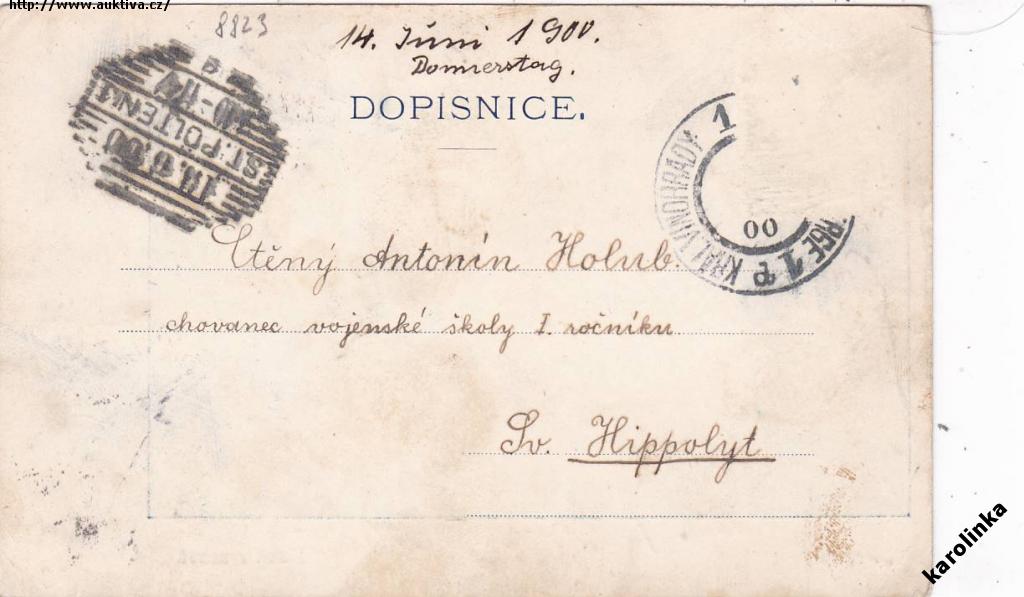 http://www.auktiva.cz/
8823
14. Juni 1900.
Donnerstag.
DOPISNICE.
ST. PÖLTEN
KRÁL. VINOHRADY 1
1
00
Ctěný Antonín Holub.
chovanec vojenské školy I. ročníku
Sv. Hippolyt
karolinka